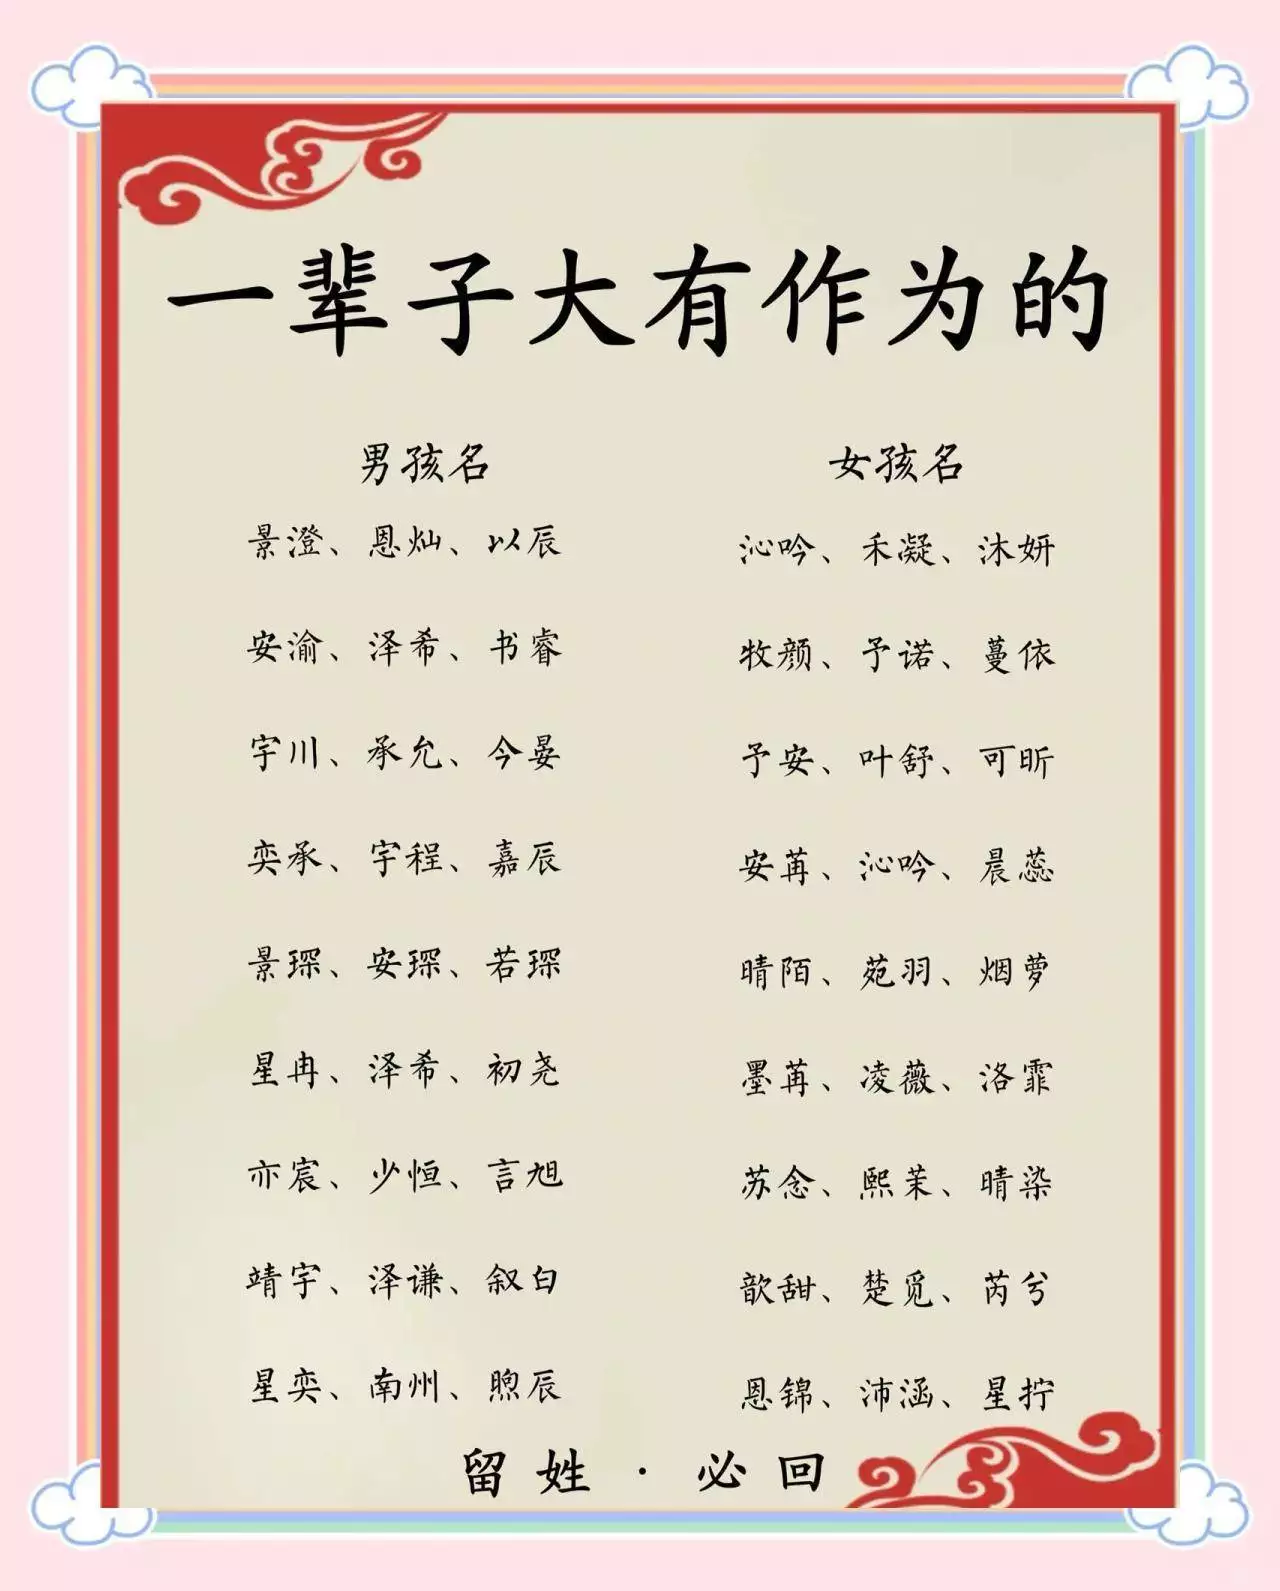 一辈子大有作为的
男孩名
景澄、恩灿、以辰
安渝、泽希、书睿
宇川、承允、今晏
奕承、宇程、嘉辰
景琛、安琛、若琛
星冉、泽希、初尧
亦宸、少恒、言旭
靖宇、泽谦、叙白
星奕、南州、煦辰
女孩名
沁吟、禾凝、沐妍
牧颜、予诺、蔓依
予安、叶舒、可昕
安苒、沁吟、晨蕊
晴陌、苑羽、烟萝
墨苒、凌薇、洛霏
苏念、熙茉、晴染
歆甜、楚觅、芮兮
恩锦、沛涵、星拧
留姓·必回